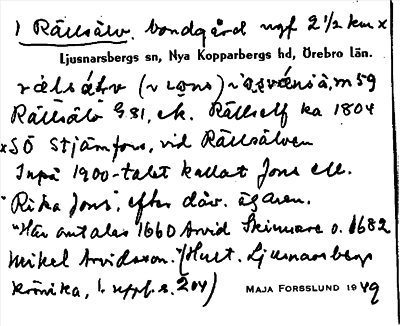 1 Rällsälv. bondgård ungf 2 ½ km x
Ljusnarsbergs sn, Nya Kopparbergs hd, Örebro län.
Rällsälv G 81, ek. Rällself ka 1804
x SÖ Stjärnfors, vid Rällsälven
Inpå 1900-talet kallat Jons ell.
"Rika Jons", efter dåv. ägaren.
"Här omtalas 1660 Arvid Skinnare o. 1682
Mikel Arvidsson." (Hult. Ljusnarsbergs
krönika, 1. uppl. s. 204)
MAJA FORSSLUND 1949